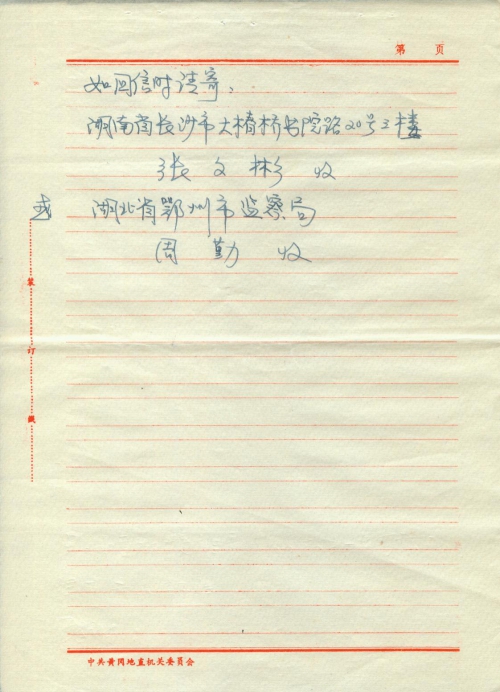 第 页
如回信时请寄:
湖南省长沙市大椿桥书院路20号3楼
张文彬 收
或 湖北省鄂州市监察局
周勤 收
装
订
线
中共黄冈地直机关委员会